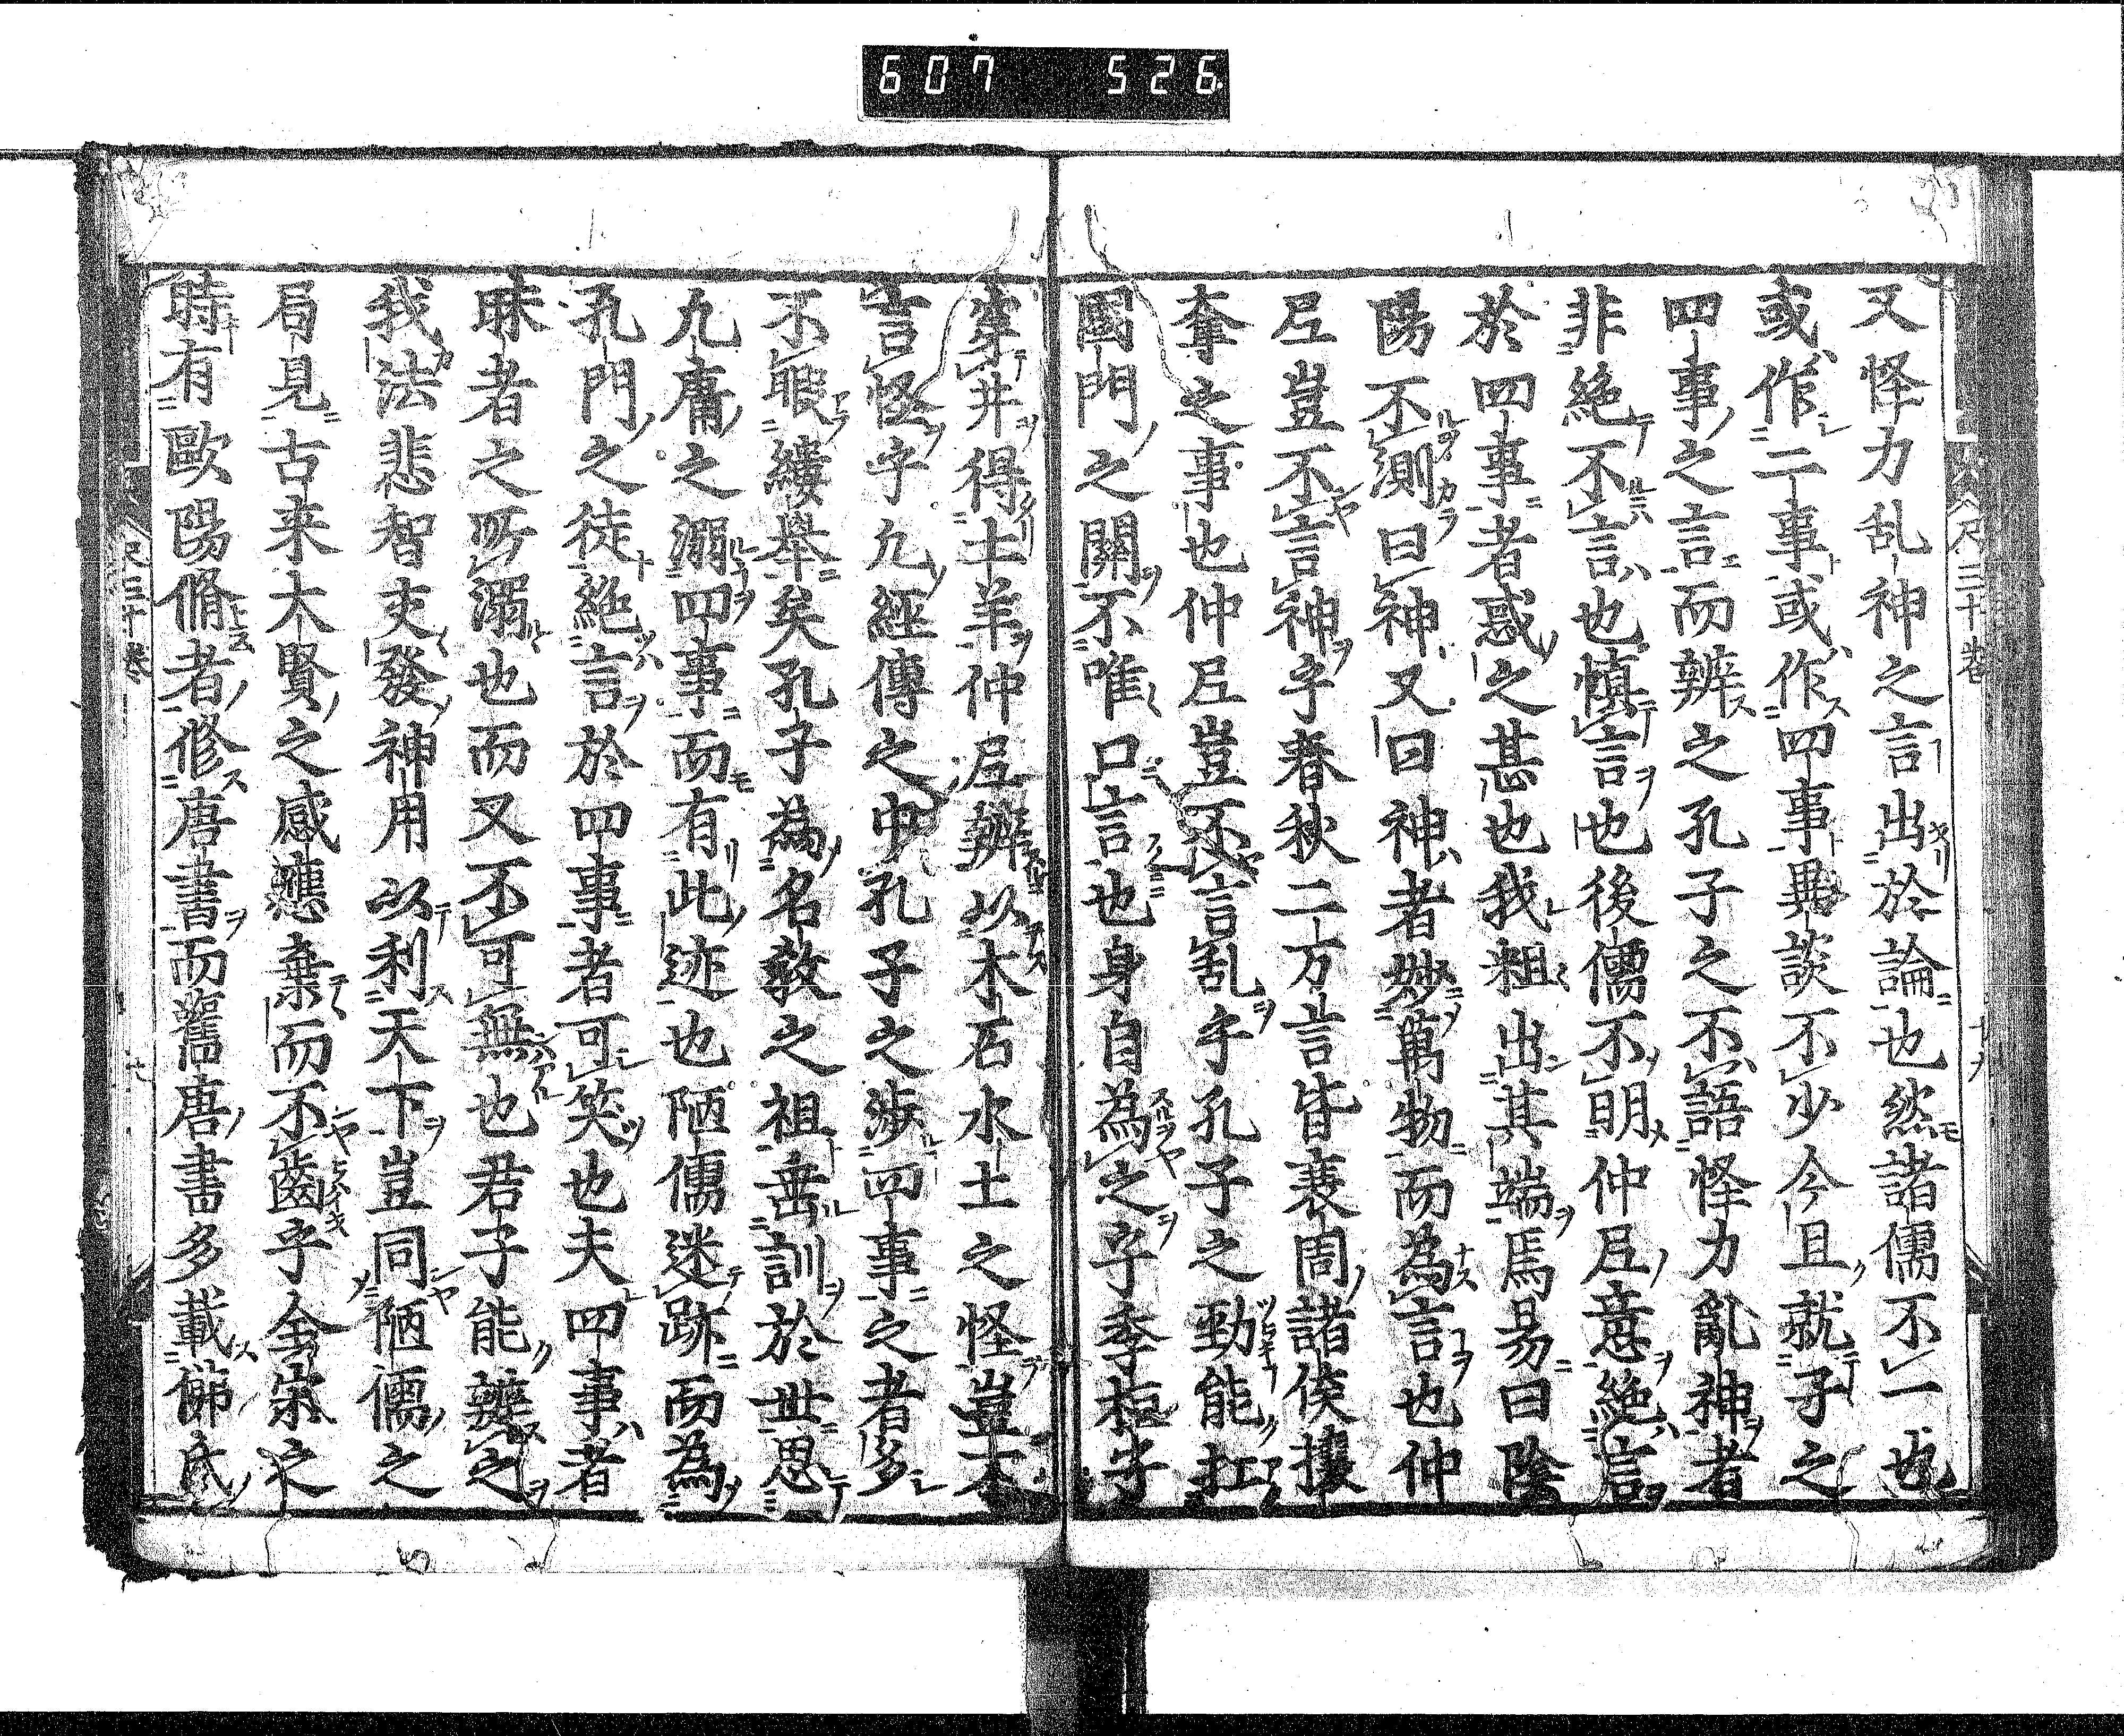 607 526
又怪力乱神之言出於論也然諸儒不一也
或作二事或作四事異談不少今且就子之
四事之言而辨之孔子之不語怪力亂神者
非絶不言也慎言也後儒不明仲𡰱意絶言
於四事者惑之甚也我粗出其端焉易曰陰
陽不測曰神又曰神者妙萬物而為言也仲
𡰱豈不言神乎春秋二万言皆衰周諸侯攘
奪之事也仲𡰱豈不言乱乎孔子之勁能扛
國門之關不唯口言也身自為之乎季桓子
穿井得土羊仲𡰱辨以木石水土之怪豈不
言怪乎九經傳之中孔子之渉四事之者多
不暇縷挙矣孔子為名教之祖垂訓於世思
凢庸之溺四事而有此迹也陋儒迷跡而為
孔門之徒絶言於四事者可笑也夫四事者
昧者之所溺也而又不可無也君子能辨之
我法悲智交發神用以利天下豈同陋儒之
局見古来大賢之感應棄而不齒乎全宋之
時有歐陽脩者修唐書而舊唐書多載佛氏
尺三十巻